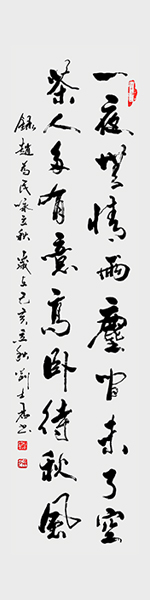 一夜無情雨塵曾未了空
茶人多有意高卧待秋風
錄趙為民咏立秋歲在己亥立秋劉士忠書